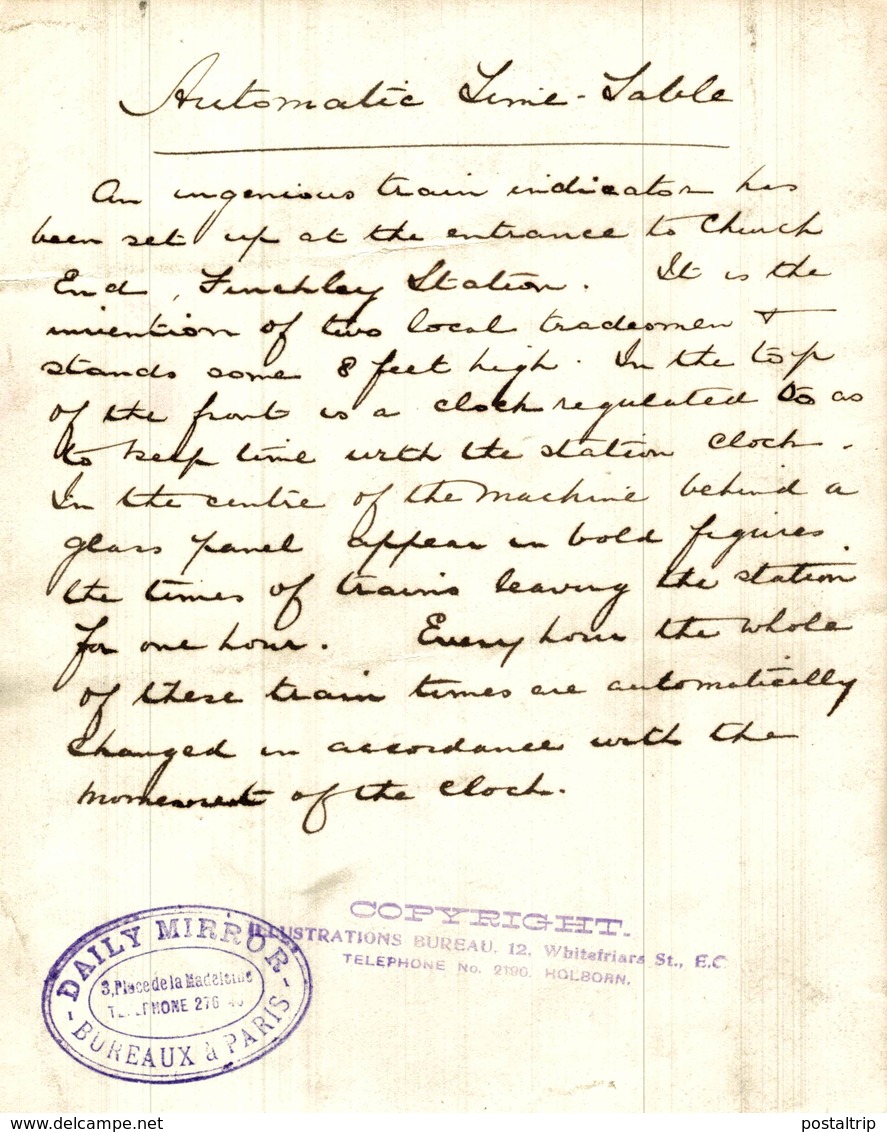 Automatic Time-Table
An ingenious train indicator has
been set up at the entrance to Church
End, Finchley Station. It is the
invention of two local tradesmen +
stands some 8 feet high. In the top
of the front is a clock regulated so as
to keep time with the station clock.
In the centre of the machine behind a
glass panel appear in bold figures
the times of trains leaving the station
for one hour. Every hour the whole
of these train times are automatically
changed in accordance with the
movement of the clock.
COPYRIGHT.
ILLUSTRATIONS BUREAU, 12, Whitefriars St., E.C.
TELEPHONE No. 2190. HOLBORN.
- DAILY MIRROR -
3, Place de la Madeleine
TELEPHONE 276
BUREAUX à PARIS
www.delcampe.net
postaltrip